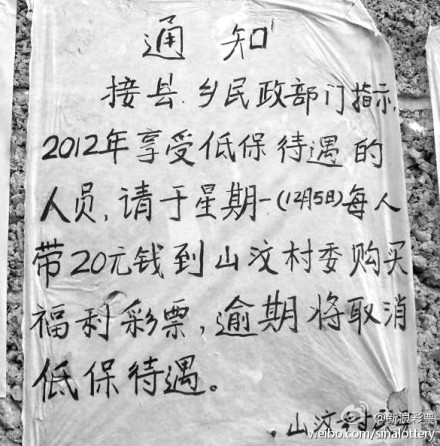 通知
接县.乡民政部门指示,
2012年享受低保待遇的
人员,请于星期一(12月5日)每人
带20元钱到山汶村委购买
福利彩票,逾期将取消
低保待遇。
山汶村
@新浪彩票
weibo.com/sinalottery